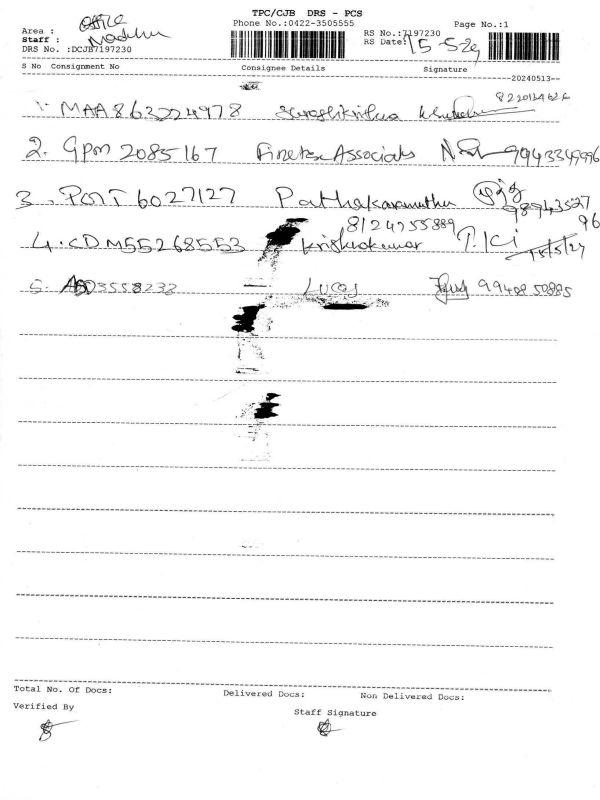 TPC/CJB DRS - PCS
Area : Office Phone No.:0422-3505555 Page No.:1
Staff : Madhu RS No.:7197230
DRS No. :DCJB7197230 RS Date: 15-5-24
S No Consignment No Consignee Details Signature
--20240513--
1. MAA863224978
2. GPM 2085167 Associats 9943349996
3. PONT 6027127 Pathakaramuthu 98943527
96
8124755889
4. CDM55268553 Krishnakumar 15/5/24
5. 3558232 Lucas
Total No. Of Docs: Delivered Docs: Non Delivered Docs:
Verified By Staff Signature